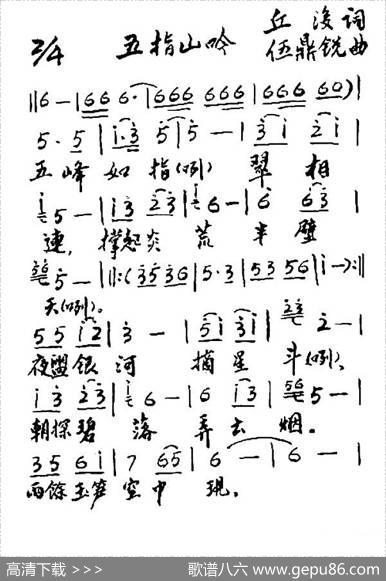 2/4 五指山吟 丘濬词
伍鼎锐曲
‖6 - | 666 6· | 666 666 | 666 60) |
5· 5 | i·3 5 | 5 - | 3 i 2 i |
五峰如指(咧)翠相
5 - | i 3 2 3 | 6 - | 6 63 |
連,撑起炎荒半壁
5 - ‖:(3536 | 5·3 | 53 56 | i -):‖
天(咧)。
5 5 i 2 | 3 - | 5 i 3 i | 2 - |
夜盥银河摘星斗(咧)、
i 3 2 3 | 6 - | 6 i 3 | 5 - |
朝探碧落弄云烟。
3 5 6 i | 7 65 | 6 - | 6 - |
雨馀玉笋空中現。
高清下载 >>>
歌谱八六 www.gepu86.com